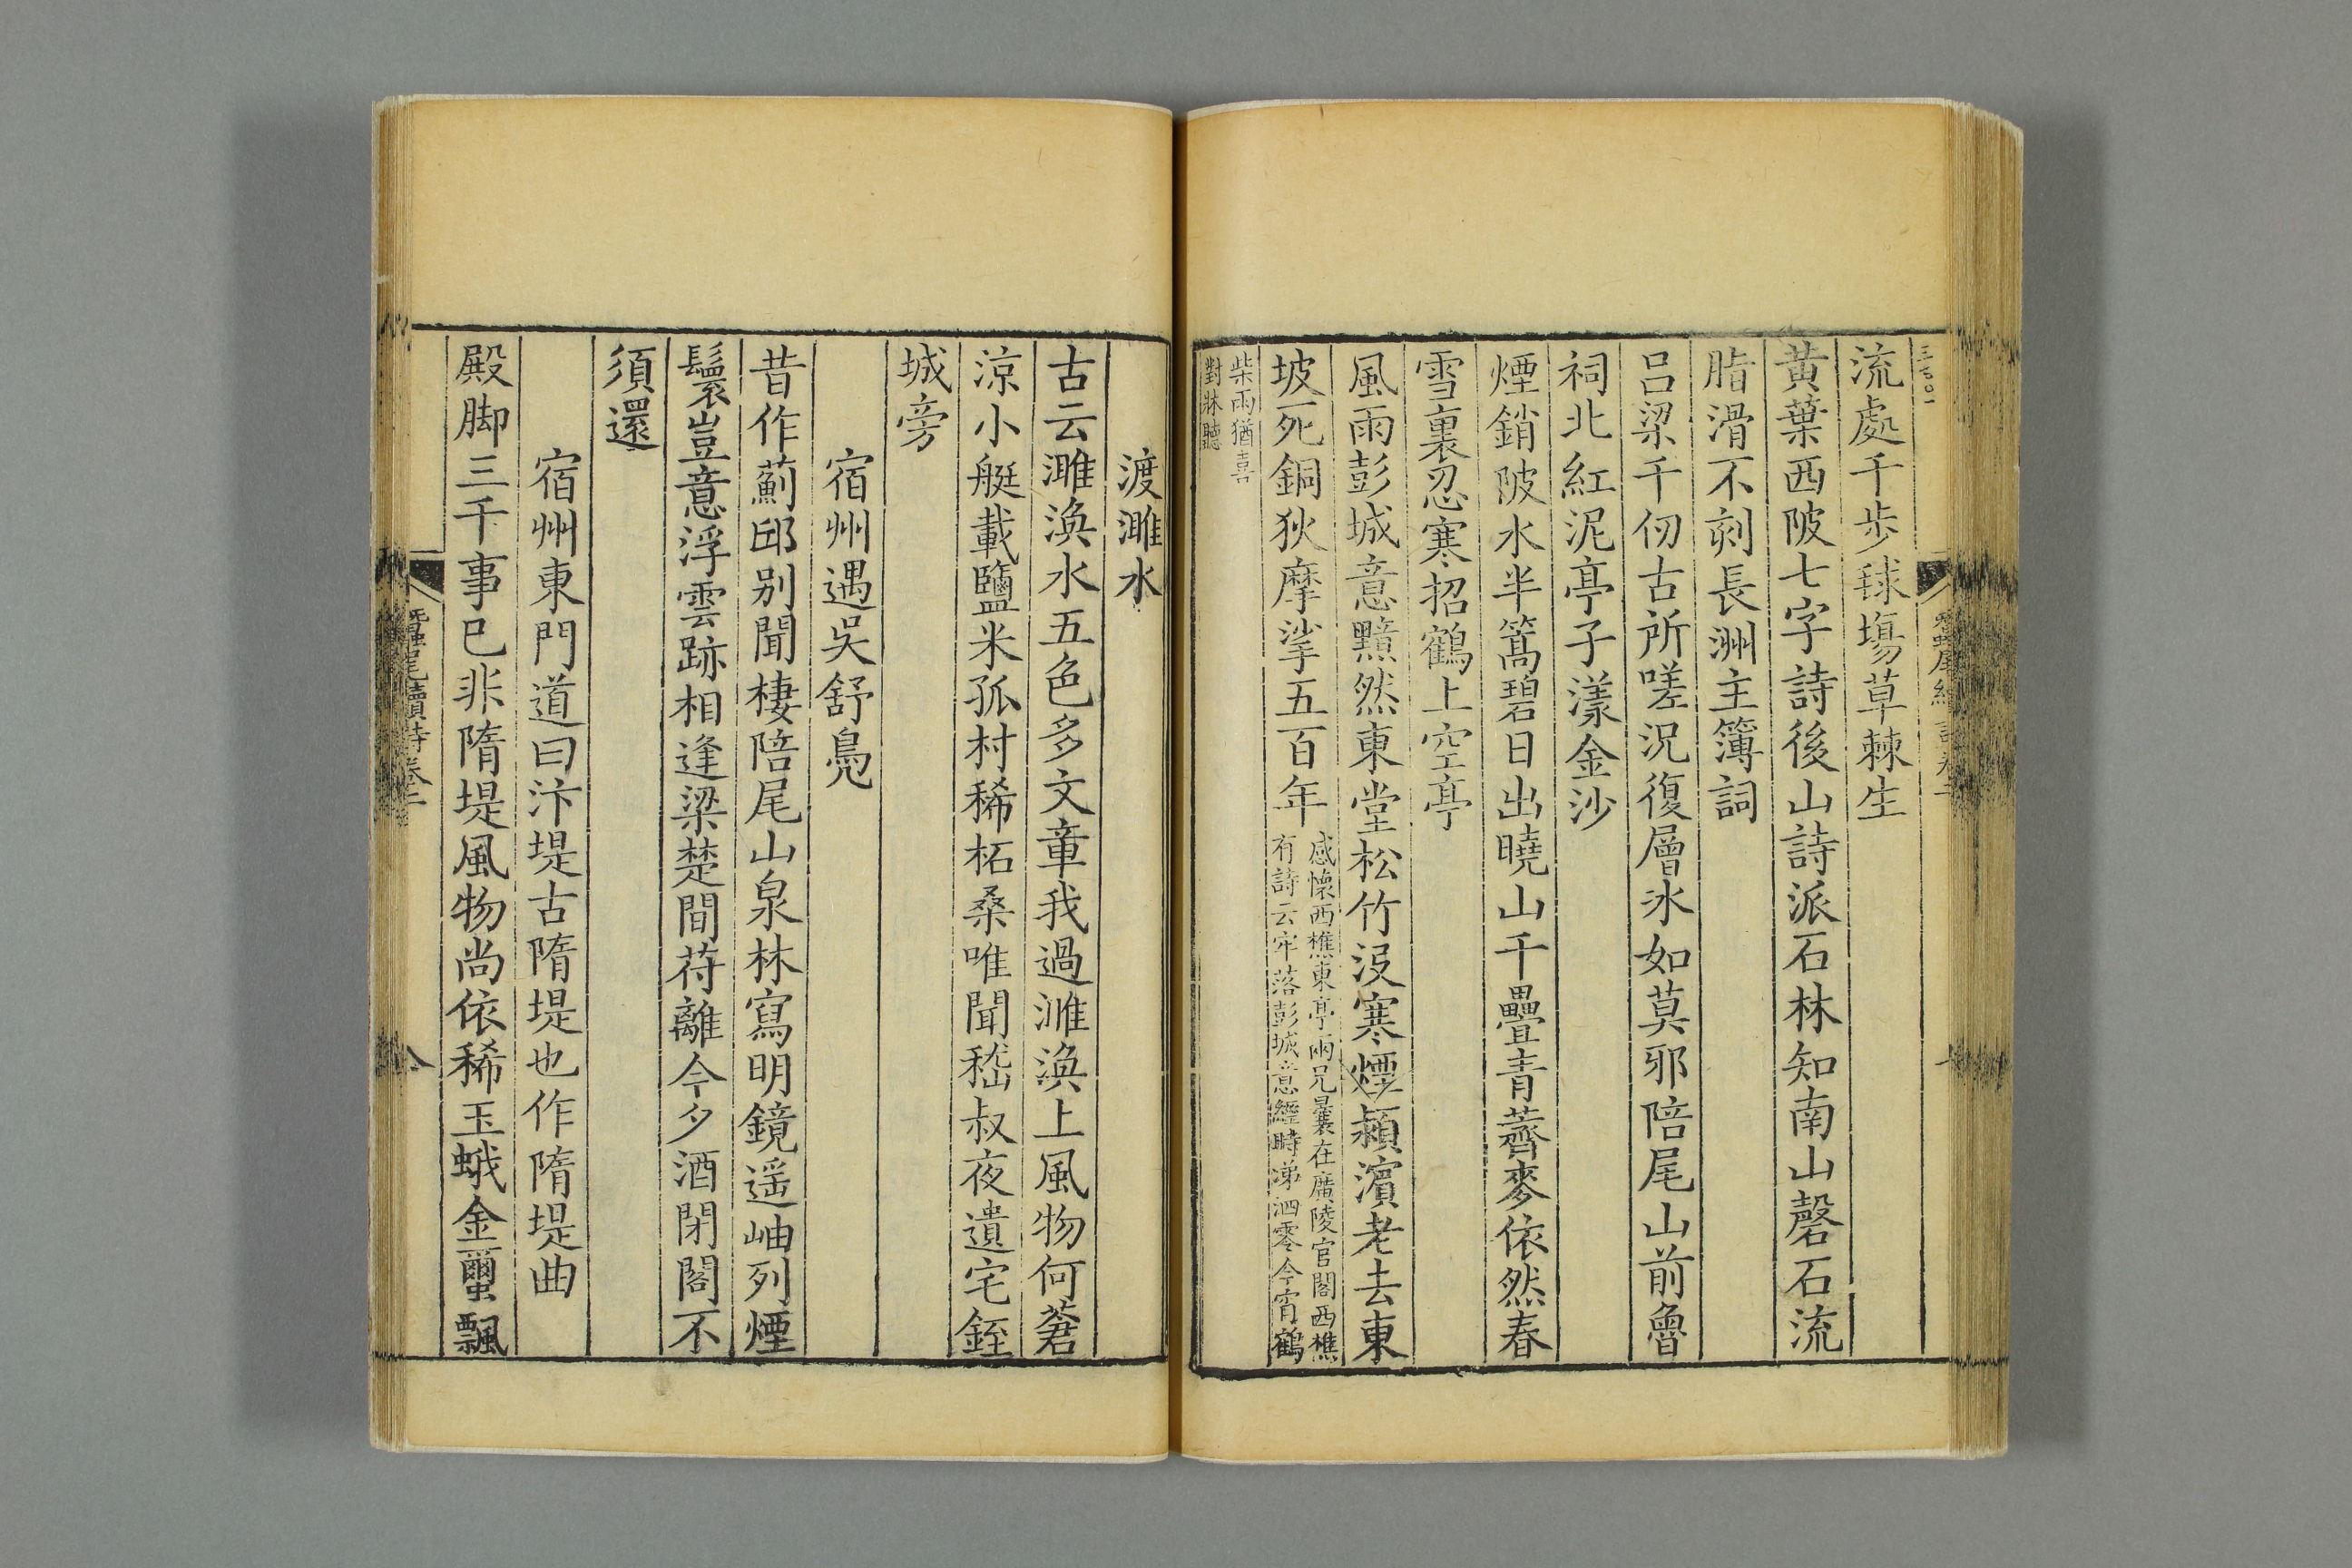 流處千步毬塲草棘生
黃葉西陂七字詩後山詩派石林知南山磬石流
脂滑不刻長洲主簿詞
呂梁千仞古所嗟況復層冰如莫邪陪尾山前魯
祠北紅泥亭子漾金沙
煙銷陂水半篙碧日出曉山千疊青薺麥依然春
雪裏忍寒招鶴上空亭
風雨彭城意黯然東堂松竹沒寒煙潁濱老去東
坡死銅狄摩挲五百年
感懷西樵東亭兩兄曩在廣陵官閣西樵
有詩云牢落彭城意經時涕泗零今宵鶴
柴雨猶喜
對牀聽
渡濉水
古云濉渙水五色多文章我過濉渙上風物何蒼
涼小艇載鹽米孤村稀柘桑唯聞嵇叔夜遺宅銍
城旁
宿州遇吳舒鳧
昔作薊邱别聞棲陪尾山泉林寫明鏡遥岫列煙
鬟豈意浮雲跡相逢梁楚間苻離今夕酒閉閣不
須還
宿州東門道曰汴堤古隋堤也作隋堤曲
殿脚三千事巳非隋堤風物尚依稀玉蛾金璽飄
蠶尾續詩卷二
八